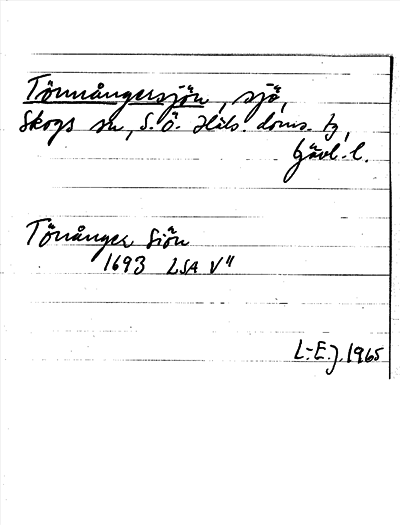 Tönnångersjön, sjö,
Skogs sn, S.Ö. Häls. doms. tg,
Gävl. l.
Tönånger Siön
1693 LSA V"
L.-E.J. 1965